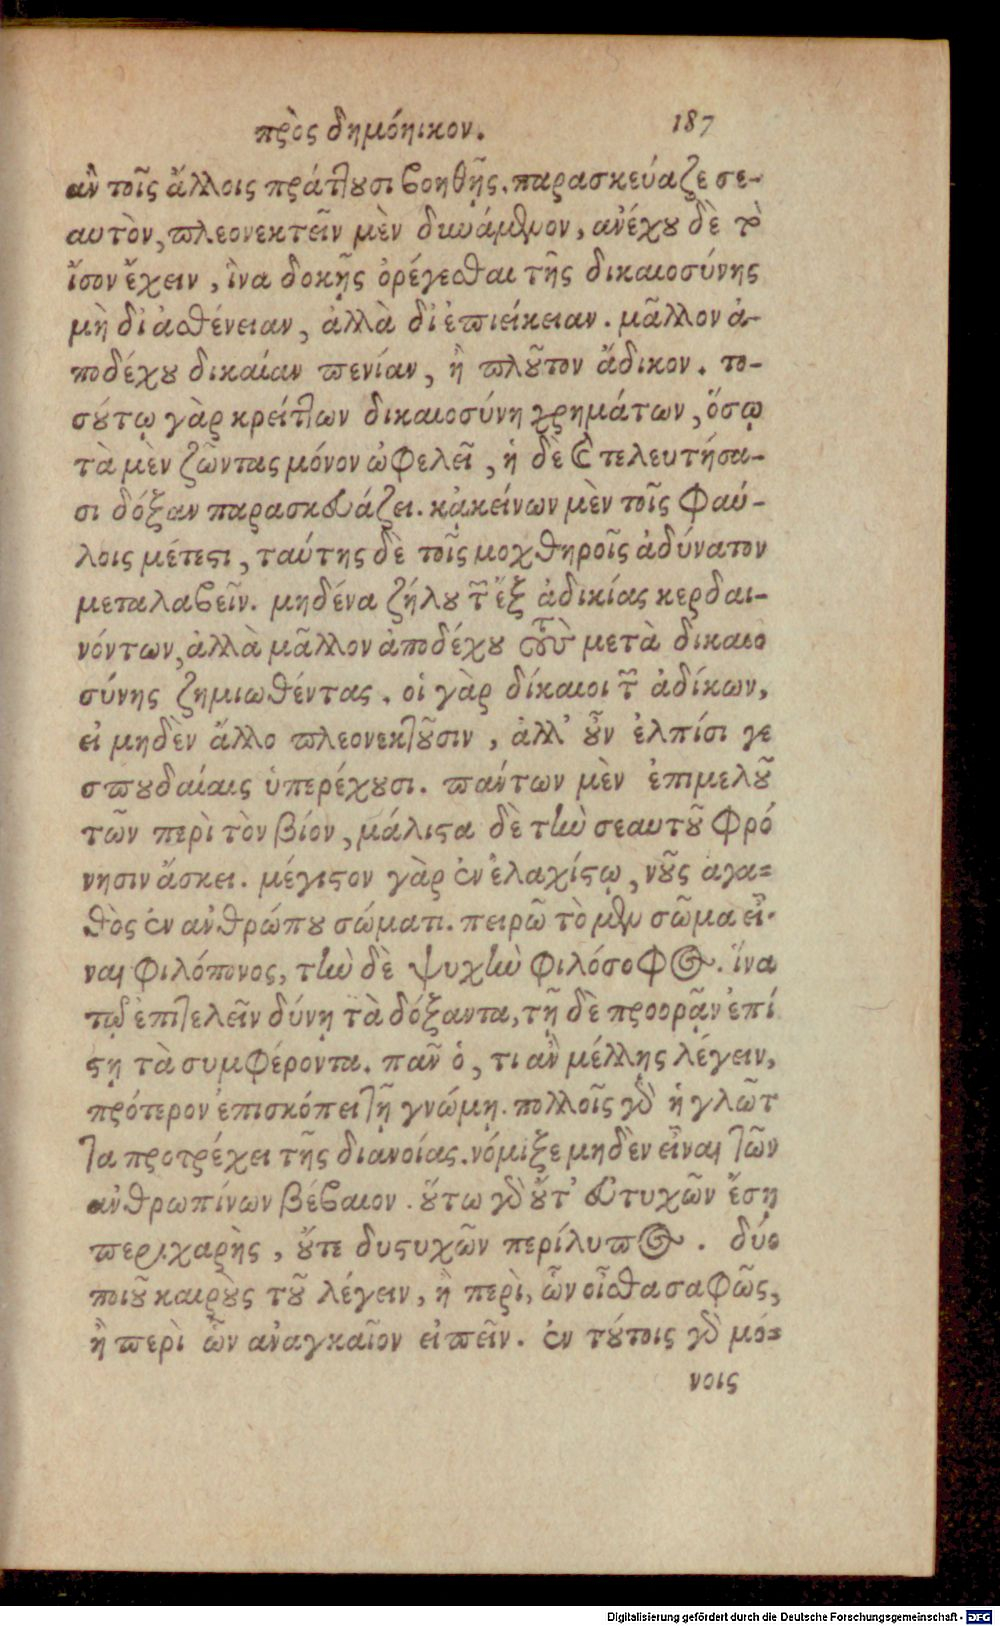 πρὸς δημόνικον. 187
ἂν τοῖς ἄλλοις πράττουσι βοηθῇς. παρασκεύαζε σε-
αυτὸν, πλεονεκτεῖν μὲν δυνάμενον, ἀνέχου δὲ τὸ
ἴσον ἔχειν, ἵνα δοκῇς ὀρέγεσθαι τῆς δικαιοσύνης
μὴ δι' ἀσθένειαν, ἀλλὰ δι' ἐπιείκειαν. μᾶλλον ἀ-
ποδέχου δικαίαν πενίαν, ἢ πλοῦτον ἄδικον. το-
σούτῳ γὰρ κρείττων δικαιοσύνη χρημάτων, ὅσῳ
τὰ μὲν ζῶντας μόνον ὠφελεῖ, ἡ δὲ καὶ τελευτήσα-
σι δόξαν παρασκευάζει. κἀκείνων μὲν τοῖς φαύ-
λοις μέτεστι, ταύτης δὲ τοῖς μοχθηροῖς ἀδύνατον
μεταλαβεῖν. μηδένα ζήλου τῶν ἐξ ἀδικίας κερδαι-
νόντων, ἀλλὰ μᾶλλον ἀποδέχου τοὺς μετὰ δικαιο
σύνης ζημιωθέντας. οἱ γὰρ δίκαιοι τῶν ἀδίκων,
εἰ μηδὲν ἄλλο πλεονεκτοῦσιν, ἀλλ' οὖν ἐλπίσι γε
σπουδαίαις ὑπερέχουσι. πάντων μὲν ἐπιμελοῦ
τῶν περὶ τὸν βίον, μάλιστα δὲ τὴν σεαυτοῦ φρό
νησιν ἄσκει. μέγιστον γὰρ ἐν ἐλαχίστῳ, νοῦς ἀγα-
θὸς ἐν ἀνθρώπου σώματι. πειρῶ τὸ μὲν σῶμα εἶ-
ναι φιλόπονος, τὴν δὲ ψυχὴν φιλόσοφος. ἵνα
τῷ ἐπιτελεῖν δύνῃ τὰ δόξαντα, τῇ δὲ προορᾷν ἐπί
στῃ τὰ συμφέροντα. πᾶν ὅ, τι ἂν μέλλῃς λέγειν,
πρότερον ἐπισκόπει τῇ γνώμῃ. πολλοῖς γὰρ ἡ γλῶτ
τα προτρέχει τῆς διανοίας. νόμιζε μηδὲν εἶναι τῶν
ἀνθρωπίνων βέβαιον. οὕτω γὰρ οὔτ' εὐτυχῶν ἔσῃ
περιχαρὴς, οὔτε δυστυχῶν περίλυπος. δύο
ποιοῦ καιροὺς τοῦ λέγειν, ἢ περὶ, ὧν οἶσθα σαφῶς,
ἢ περὶ ὧν ἀναγκαῖον εἰπεῖν. ἐν τούτοις γὰρ μό-
νοις
Digitalisierung gefördert durch die Deutsche Forschungsgemeinschaft - DFG